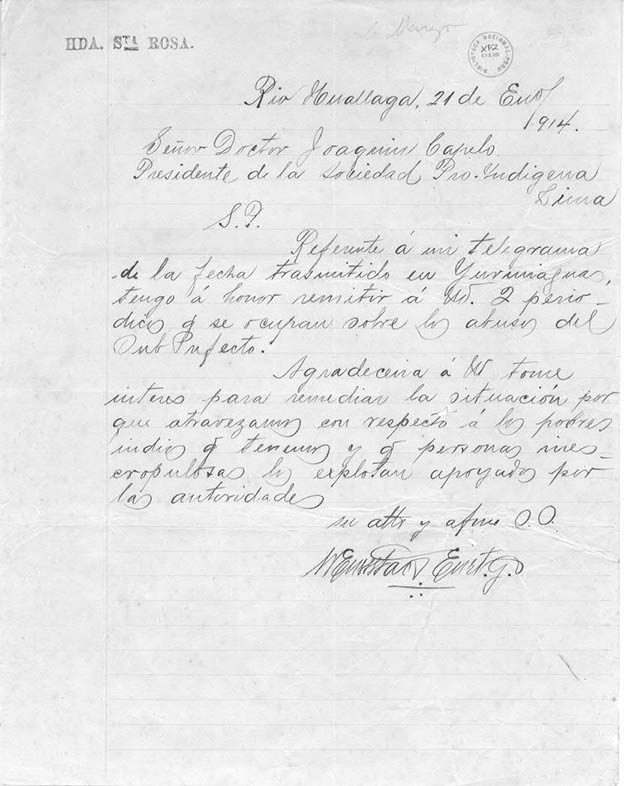 HDA. STA ROSA.
BIBLIOTECA NACIONAL PERU
Rio Huallaga, 21 de Eno/
1914.
Señor Doctor Joaquin Capelo
Presidente de la Sociedad Pro-Indigena
Lima
S. P.
Referente á mi telegrama
de la fecha trasmitido en Yurimaguas,
tengo á honor remitir á Ud. 2 perio-
dicos q se ocupan sobre los abusos del
Sub Prefecto.
Agradeceira á Ud tome
interes para remediar la situación por
que atravezamos con respecto á los pobres
indios q tenemos y q personas ines-
cropulosas los explotan apoyados por
las autoridades
su atto y afmo